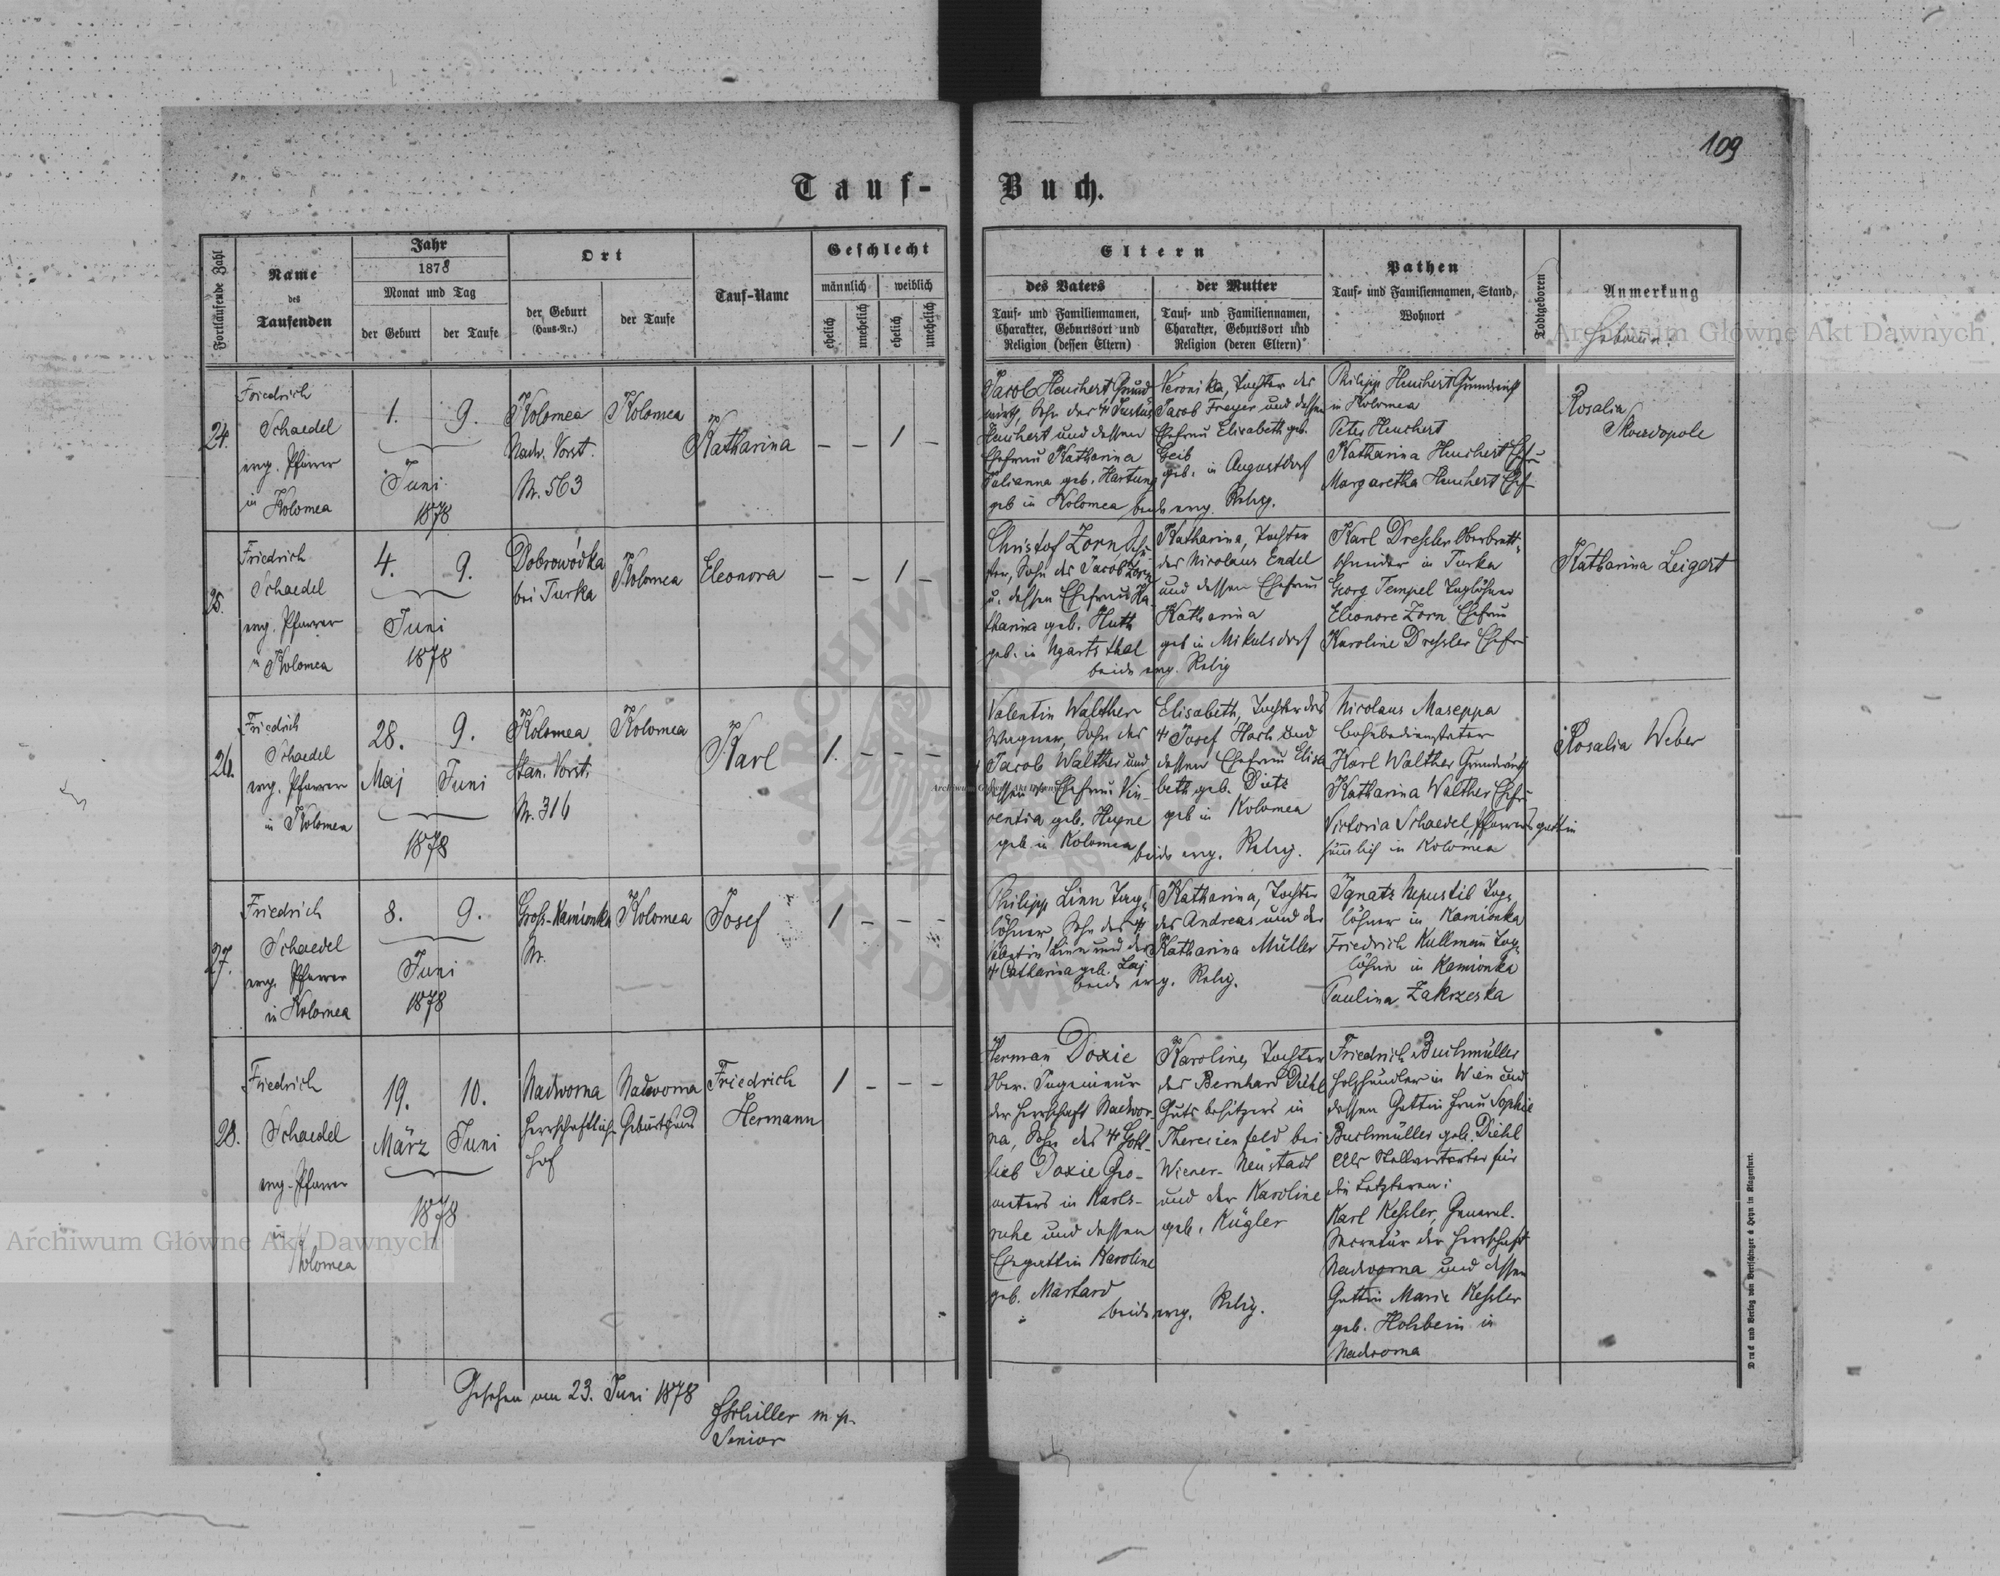 109
Tauf-Buch.
Fortlaufende Zahl
Name
des
Taufenden
Jahr
1878
Monat und Tag
der Geburt
der Taufe
Ort
der Geburt
(Haus-Nr.)
der Taufe
Tauf-Name
Geschlecht
männlich
weiblich
ehelich
unehelich
ehelich
unehelich
Eltern
des Vaters
Tauf- und Familiennamen,
Charakter, Geburtsort und
Religion (dessen Eltern)
der Mutter
Tauf- und Familiennamen,
Charakter, Geburtsort und
Religion (deren Eltern)
Pathen
Tauf- und Familiennamen, Stand,
Wohnort
Todtgeboren
Anmerkung
Hebamme:
24.
Friedrich
Schaedel
evg. Pfarrer
in Kolomea
1. 9.
Juni
1878
Kolomea
Nadw. Vorst.
Nr. 563
Kolomea
Katharina
— — 1 —
Jacob Heuchert Grund
wirth, Sohn des Justus
Heuchert und dessen
Ehefrau Katharina
Julianna geb. Hartung
geb in Kolomea
Veronika, Tochter des
Jacob Freyer und dessen
Ehefrau Elisabeth geb.
Geib
geb. in Augustdorf
beide evg. Relig.
Philipp Heuchert Grundwirth
in Kolomea
Peter Heuchert
Katharina Heuchert Ehfr
Margaretha Heuchert Ehf
Rosalia
Skowdopole
25.
Friedrich
Schaedel
evg. Pfarrer
in Kolomea
4. 9.
Juni
1878
Dobrowódka
bei Turka
Kolomea
Eleonora
— — 1 —
Christof Zorn,
Sohn des Jacob Zorn
u. dessen Ehefrau Ka-
tharina geb. Huth
geb. in Ugartsthal
Katharina, Tochter
des Nicolaus Endel
und dessen Ehefrau
Katharina
geb in Mikulsdorf
beide evg. Relig
Karl Dressler Oberbrett-
schneider in Turka
Georg Tempel Taglöhner
Eleonore Zorn Ehefrau
Karoline Dressler Ehefr
Katharina Leigert
26.
Friedrich
Schaedel
evg. Pfarrer
in Kolomea
28. 9.
Maj Juni
1878
Kolomea
Stan. Vorst.
Nr. 316
Kolomea
Karl
1. — — —
Valentin Walther
Wagner, Sohn des
Jacob Walther und
dessen Ehefrau Vin-
centia geb. Heyne
geb in Kolomea
Elisabeth, Tochter des
Josef Harh und
dessen Ehefrau Elisa
beth geb. Dietz
geb in Kolomea
beide evg. Relig.
Nicolaus Maseppa
Bahnbediensteter
Karl Walther Grundwirth
Katharina Walther Ehefr
Victoria Schaedel, Pfarrersgattin
sämmtlich in Kolomea
Rosalia Weber
27.
Friedrich
Schaedel
evg. Pfarrer
in Kolomea
8. 9.
Juni
1878
Gross-Kamionka
Nr.
Kolomea
Josef
1 — — —
Philipp Linn Tag-
löhner, Sohn des
Linn und der
Catharina geb.
Katharina, Tochter
des Andreas und der
Katharina Müller
beide evg. Relig.
Ignatz Nepustil Tag-
löhner in Kamionka
Friedrich Kullmann Tag-
löhner in Kamionka
Paulina Zakrzeska
28.
Friedrich
Schaedel
evg. Pfarrer
in
Kolomea
19. 10.
März Juni
1878
Nadworna
herrschaftlich
Hof
Nadworna
Geburtshaus
Friedrich
Hermann
1 — — —
Herman Doxie
Ober-Ingenieur
der Herrschaft Nadwor-
na, Sohn des Gott-
lieb Doxie
in Karls-
ruhe und dessen
Ehegattin Karoline
geb. Martard
Karoline, Tochter
des Bernhard Diehl
Gutsbesitzers in
Theresienfeld bei
Wiener-Neustadt
und der Karoline
geb. Kügler
beide evg. Relig.
Friedrich Buchmüller
Holzhändler in Wien und
dessen Gattin Frau Sophie
Buchmüller geb. Diehl
Als Stellvertreter für
die Letzteren:
Karl Kessler, General-
Secretär der Herrschaft
Nadworna und dessen
Gattin Marie Kessler
geb. Holzbein in
Nadworna
Gesehen am 23. Juni 1878
Schiller m p.
Senior
Druck und Verlag von Bertschinger & Heyn in Klagenfurt.
Archiwum Główne Akt Dawnych
Archiwum Główne Akt Dawnych
Archiwum Główne Akt Dawnych